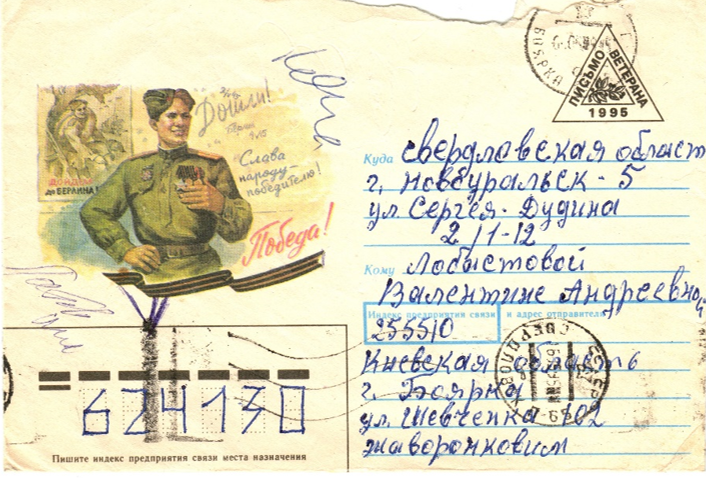 БОЯРКА
ПИСЬМО ВЕТЕРАНА
1995
Дошли!
Слава
народу-
победителю!
ДОЙДЕМ
до БЕРЛИНА!
Победа!
Куда Свердловская област
г. Новоуральск-5
ул. Сергея Дудина
2/1-12
Кому Лобастовой
Валентине Андреевной
Индекс предприятия связи и адрес отправителя
255510
Киевская область
г. Боярка
ул. Шевченка 102
Жаворонковим
624130
Пишите индекс предприятия связи места назначения